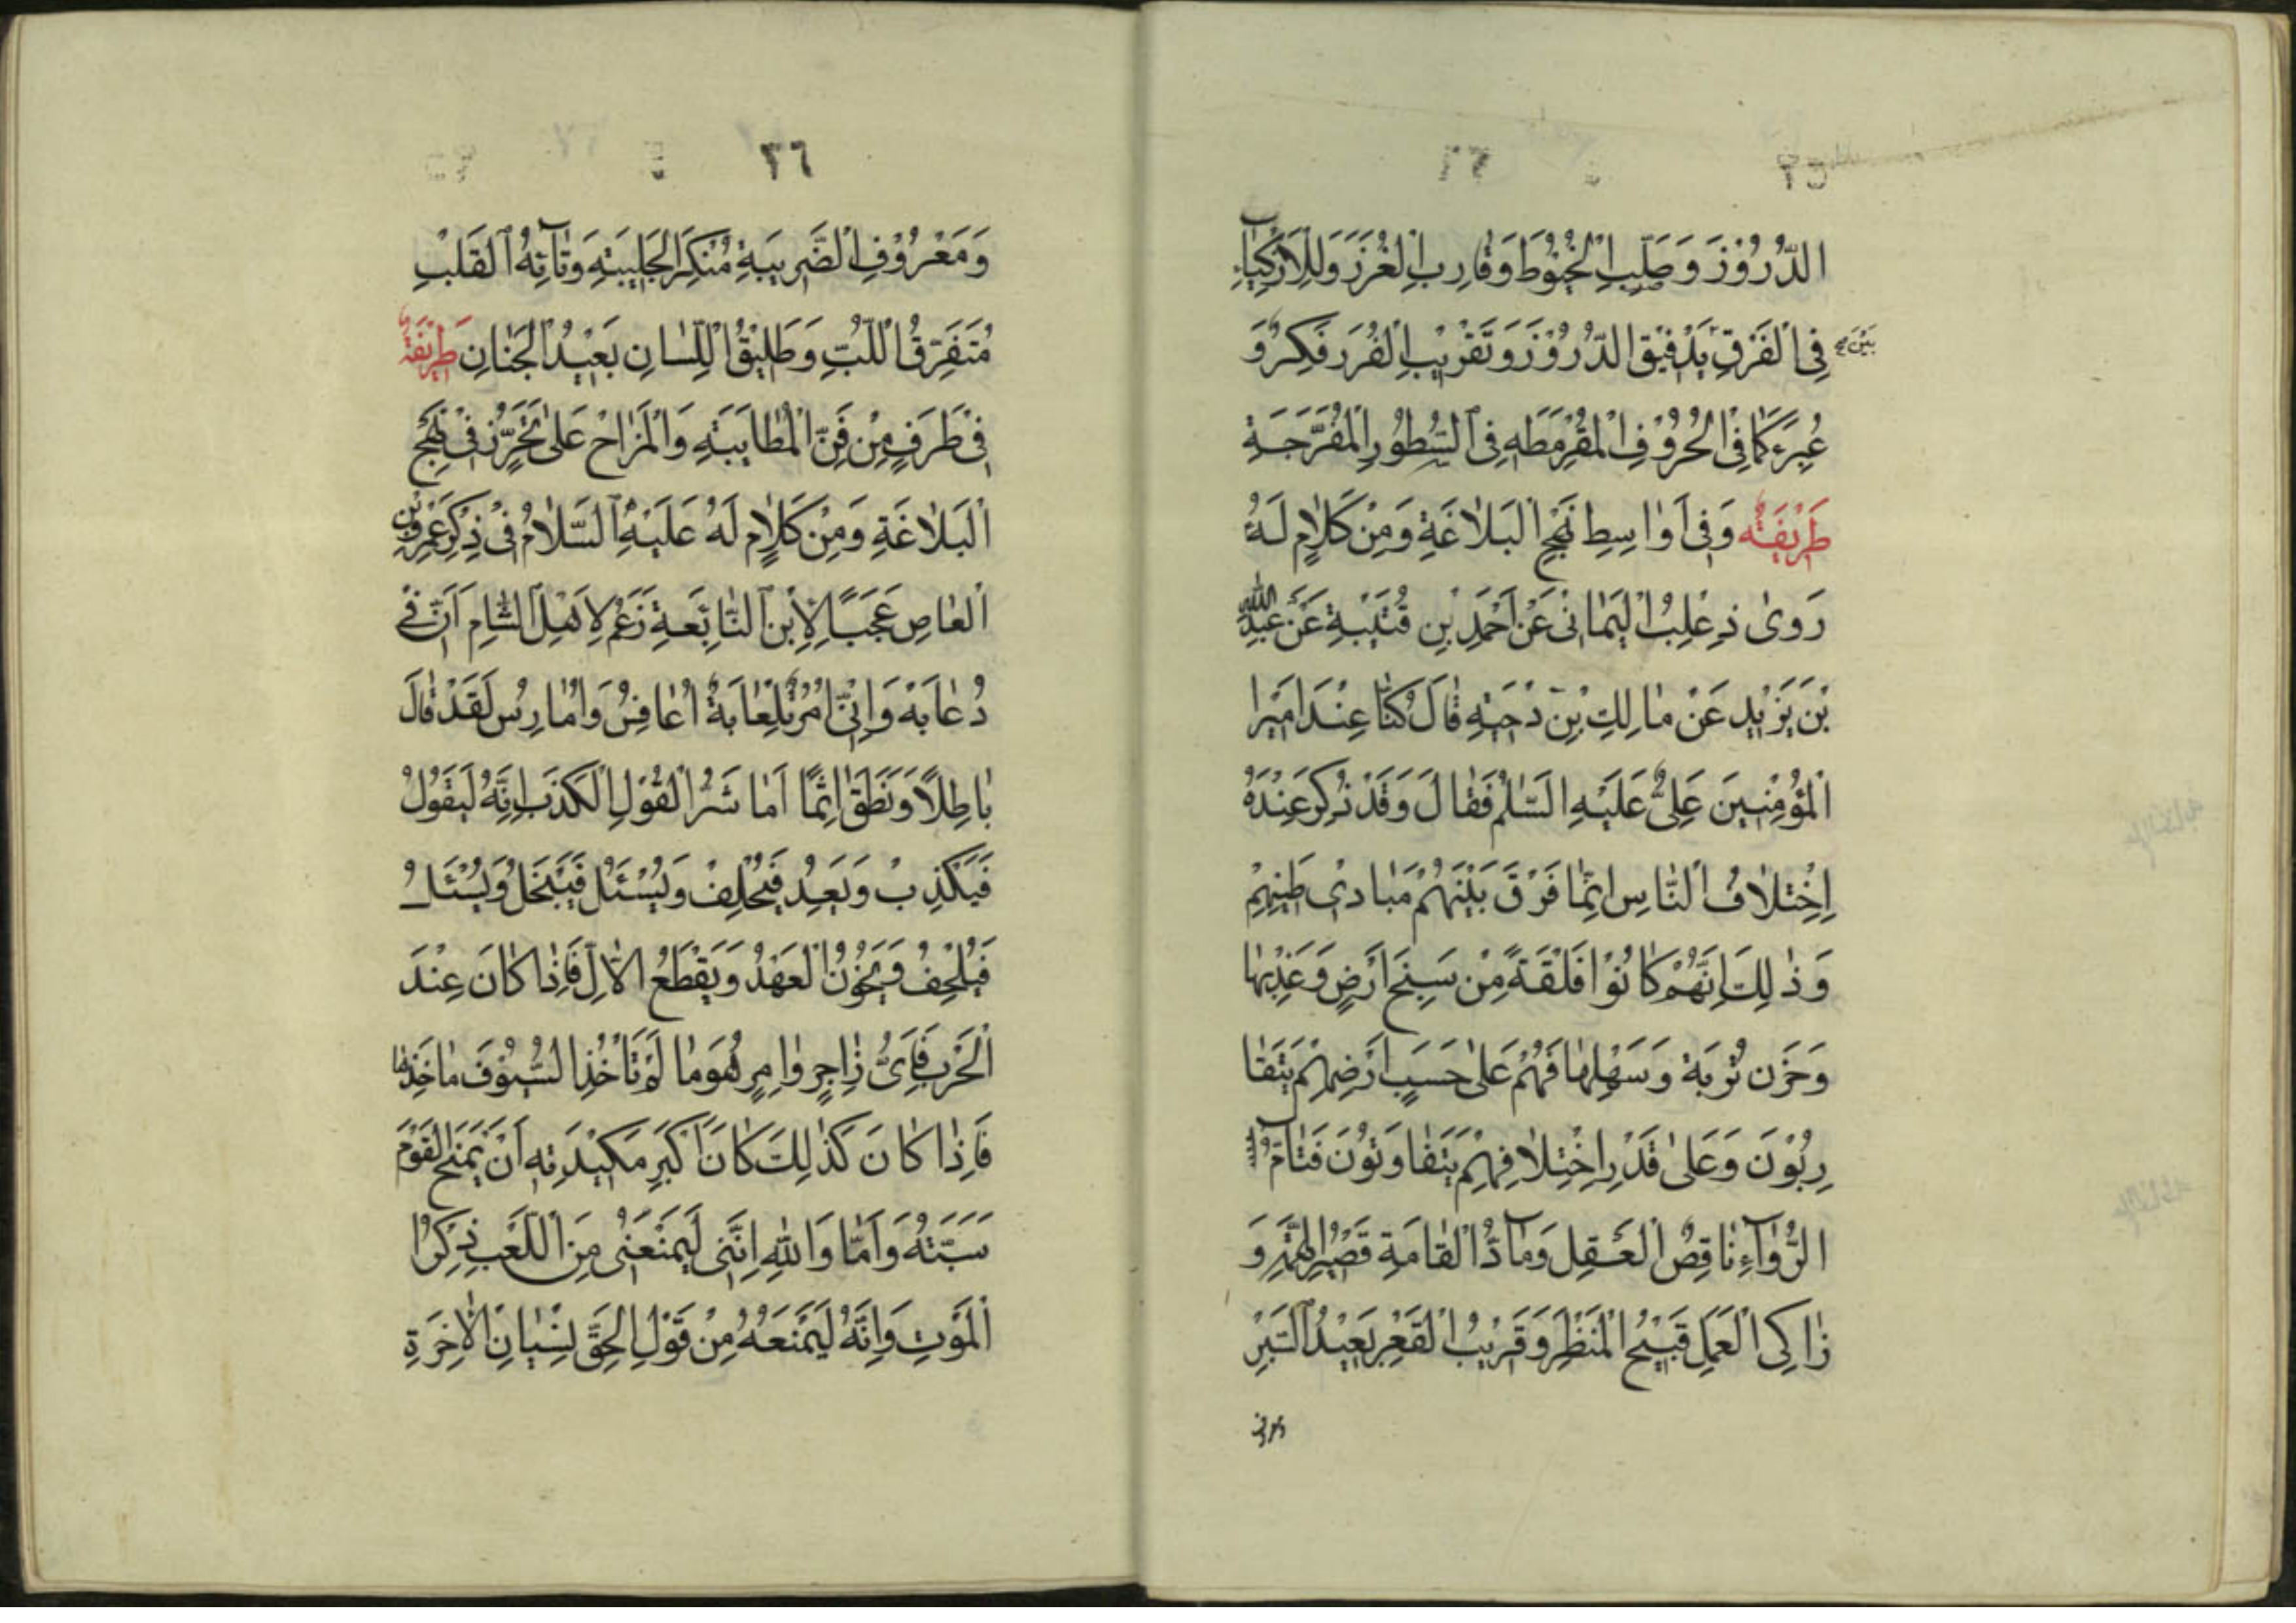 ٢٥
الدُّرُوْزَ وَ صَلِّبِ الْخُيُوْطَ وَ قَارِبِ الْغُرَزَ وَ لِلْاَزْكِيَاءِ
فِى الْفَرْقِ بَيْنَ تَدْقِيْقِ الدُّرُوْزَ وَ تَقْرِيْبِ الْغُرَزِ فِكَرٌ وَ
عِبَرٌ كَمَا فِى الْحُرُوْفِ الْمُقَرْمَطَهِ فِى السُّطُوْرِ الْمُفَرَّجَةِ
طَرِيْفَةٌ وَ فِى اَوَاسِطِ نَهْجِ الْبَلَاغَةِ وَ مِنْ كَلَامٍ لَهُ
رَوىٰ ذِعْلِبُ الْيَمَانىِ عَنْ اَحْمَدِ بْنِ قُتَيْبَةِ عَنْ عَبْدِ اللّٰهِ
بْنَ يَزْيِدِ عَنْ مَالِكِ بْنَ دَحْيَةِ قَالَ كُنَّا عِنْدَ اَمِيْرِ
الْمُؤْمِنْينَ عَلِىٌّ عَلَيْهِ السَّلٰمُ فَقَالَ وَ قَدْ ذُكِرَ عِنْدَهُ
اِخْتِلَافُ النَّاسِ اِنَّمَا فَرَّقَ بَيْنَهُمْ مَبَادِىِ طِيْنِهِمْ
وَ ذٰلِكَ اِنَّهُمْ كَانُوْا فَلْقَةً مِنْ سَبِخَ اَرْضٍ وَ عَذْبِهَا
وَ حَزْنِ تُرْبَة وَ سَهْلِهَا فَهُمْ عَلىٰ حَسَبِ اَرْضِهِمْ يَتَقَا
رِبُوْنَ وَ عَلىٰ قَدْرِ اِخْتِلَافِهِمْ يَتَفَاوَتُوْنَ فَتَامُّ
الرُّوَآءِ نَاقِصُ الْعَقِلِ وَ مَآدُّ الْقَامَةِ قَصْيُرِ الْهِمَّةِ وَ
زَاكِى الْعَمَلِ قَبِيْحُ الْمَنْظَرِ وَ قَرِيْبُ الْقَعْرِ بَعِيْدُ السَّبْرِ
٢٦
وَ مَعْرُوْفِ الضَّرِيبَةِ مُنْكَرَ الْجَلِيبَةِ وَ تَآئِهُ الْقَلْبِ
مُتَفَرِّقُ اللُّبِّ وَ طَلِيْقُ اللِّسَانِ بَعِيْدُ الْجَنَانِ طَرِيْفَةٌ
فِىْ طَرَفٍ مِنْ فَنِّ الْمُطَايَبَةِ وَ الْمَزَاحْ عَلىٰ تَحَرُّزٍ فِىْ نَهْجِ
الْبَلَاغَةِ وَ مِنْ كَلَامٍ لَهُ عَلَيْهِ السَّلَامُ فِىْ ذِكْرِ عَمْرِو بْنِ
الْعَاصِ عَجَبًا لِاِبْنِ النَّابِغَةِ زَعَمَ لِاَهْلِ الشَّامِ اَنَّ فِىَّ
دُعَابَةُ وَ اِنِّىْ امْرُءٌ تِلْعَابَةٌ اُعَافِسُ وَ اُمَارِسُ لَقَدْ قَالَ
بَاطِلًا وَ نَطَقَ اِثْمًا اَمَا شَرُّ الْقَوْلِ الْكَذَبِ اِنَّهُ لَيَقُوْلُ
فَيَكْذِبْ وَ يَعِدُ فَيُخْلِفْ وَ يُسْئَلُ فَيَبْخَلُ وَ يَسْئَلُ
فَيُلْحِفُ وَ يَخُوْنُ الْعَهْدُ وَ يَقْطَعُ الْاِلَّ فَاِذَا كَانَ عِنْدَ
الْحَرْبِ فَاَىُّ زَاجِرٍ وَ امِرٍ هُوَ مَا لَمْ تَاْخُذِ السُّيُوْفَ مَاخَذِهَا
فَاِذَا كَانَ كَذٰلِكَ كَانَ اَكْبَرِ مَكِيْدَتِهِ اَنْ يَمْنَحَ الْقَوْمَ
سَبَّتَهُ وَ اَمَّا وَ اللّٰهِ اِنَّنِى لَيَمْنَعُنِى مِنَ اللَّعَبِ ذِكْرُ
الْمَوْتِ وَ اِنَّهُ لَيَمْنَعَهُ مِنْ قَوْلِ الْحَقِّ نِسْيَانِ الْاٰخِرَةِ